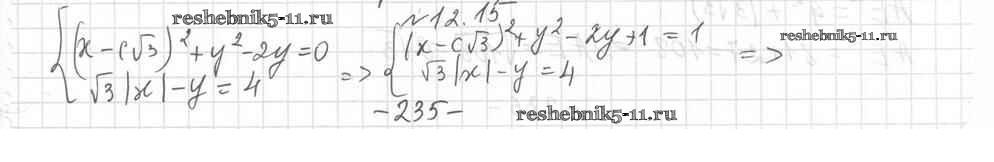 reshebnik5-11.ru
№12.15
{(x-c√3)²+y²-2y=0 => {(x-c√3)²+y²-2y+1=1 =>
√3|x|-y=4 √3|x|-y=4
reshebnik5-11.ru
-235-
reshebnik5-11.ru